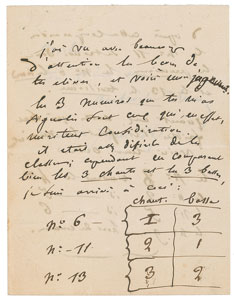 j'ai vu avec beaucoup
d'attention les basses de
tes élèves, et voici mon jugement.
les 3 Numéros que tu m'as
signalés sont ceux qui, en effet,
méritent Considération.
il était assez difficile de les
classer; cependant en comparant
bien les 3 chants et les 3 basses,
je suis arrivé à ceci:
chant. basse
n° 6 - 1 3
n° - 11 2 1
n° 13 3 2